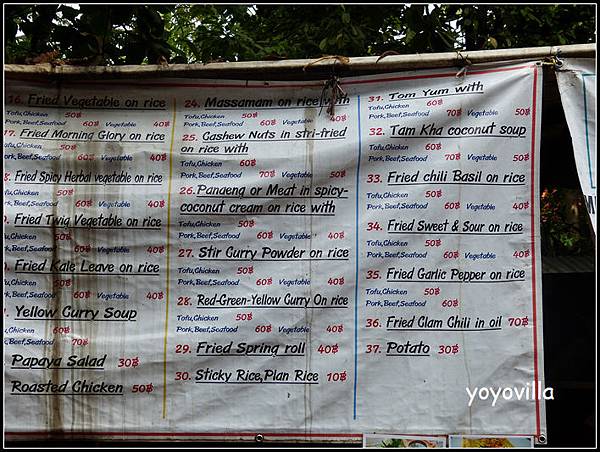 16. Fried Vegetable on rice
Tofu,Chicken 50฿
Pork,Beef,Seafood 60฿ Vegetable 40฿
17. Fried Morning Glory on rice
Tofu,Chicken 50฿
Pork,Beef,Seafood 60฿ Vegetable 40฿
8. Fried Spicy Herbal vegetable on rice
Tofu,Chicken 50฿
Pork,Beef,Seafood 60฿ Vegetable 40฿
Fried Twig Vegetable on rice
Tofu,Chicken 50฿
Pork,Beef,Seafood 60฿ Vegetable 40฿
Fried Kale Leave on rice
Tofu,Chicken 50฿
Pork,Beef,Seafood 60฿ Vegetable 40฿
Yellow Curry Soup
Tofu,Chicken 60฿
Pork,Beef,Seafood 70฿
Papaya Salad 30฿
Roasted Chicken 50฿
24. Massamam on rice with
Tofu,Chicken 60฿
Pork,Beef,Seafood 70฿ Vegetable 50฿
25. Cashew Nuts in stri-fried
on rice with
Tofu,Chicken 60฿
Pork,Beef,Seafood 70฿ Vegetable 50฿
26. Panaeng or Meat in spicy-
coconut cream on rice with
Tofu,Chicken 50฿
Pork,Beef,Seafood 60฿ Vegetable 40฿
27. Stir Curry Powder on rice
Tofu,Chicken 50฿
Pork,Beef,Seafood 60฿ Vegetable 40฿
28. Red-Green-Yellow Curry On rice
Tofu,Chicken 50฿
Pork,Beef,Seafood 60฿ Vegetable 40฿
29. Fried Spring roll 40฿
30. Sticky Rice,Plan Rice 10฿
31. Tom Yum with
Tofu,Chicken 60฿
Pork,Beef,Seafood 70฿ Vegetable 50฿
32. Tam Kha coconut soup
Tofu,Chicken 60฿
Pork,Beef,Seafood 70฿ Vegetable 50฿
33. Fried chili Basil on rice
Tofu,Chicken 50฿
Pork,Beef,Seafood 60฿ Vegetable 40฿
34. Fried Sweet & Sour on rice
Tofu,Chicken 50฿
Pork,Beef,Seafood 60฿ Vegetable 40฿
35. Fried Garlic Pepper on rice
Tofu,Chicken 50฿
Pork,Beef,Seafood 60฿
36. Fried Clam Chili in oil 70฿
37. Potato 30฿
yoyovilla